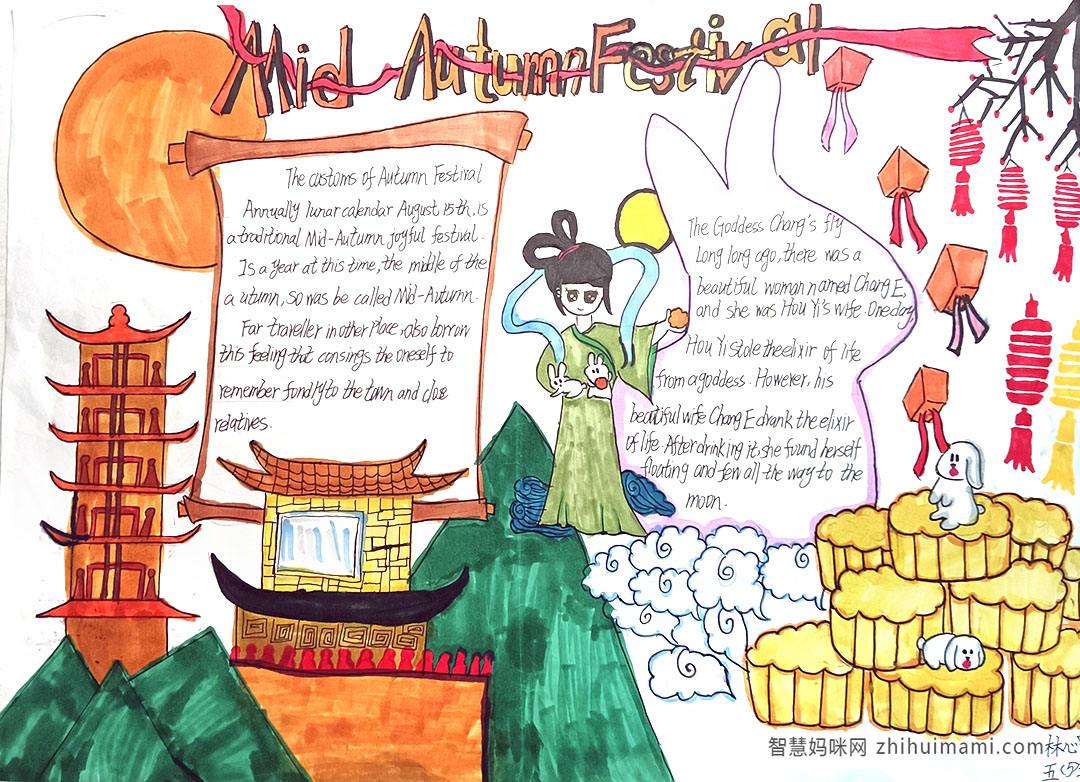 Mid Autumn Festival
The customs of Autumn Festival
Annually lunar calendar August, 15th, is
a traditional Mid-Autumn joyful festival.
Is a year at this time, the middle of the
a utumn, so was be called Mid-Autumn.
Far traveller in other Place, also borrow
this feeling that consings the oneself to
remember fondly to the town and close
relatives.
The Goddess Chang's fly
Long long ago, there was a
beautiful woman named Chang E,
and she was Hou Yi's wife. One day
Hou Yi stole the elixir of life
from a goddess. However, his
beautiful wife Chang E drank the elixir
of life. After drinking it she found herself
floating and few all the way to the
moon.
智慧妈咪网 zhihuimami.com
林心
五(5)